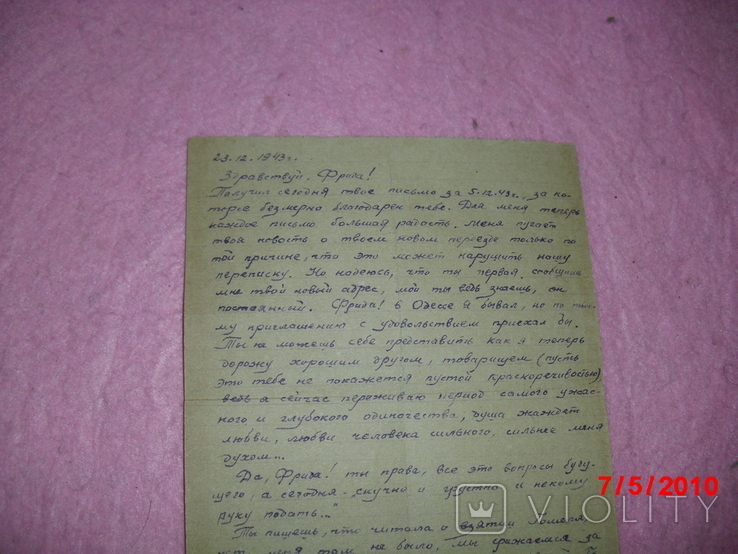 23.12.1943г.
Здравствуй, Фрида!
Получил сегодня твое письмо за 5.12.43г., за ко-
торое безмерно благодарен тебе. Для меня теперь
каждое письмо большая радость. Меня пугает
твоя новость о твоем новом переезде только по
той причине, что это может нарушить нашу
переписку. Но надеюсь, что ты первая сообщишь
мне твой новый адрес, мой ты ведь знаешь, он
постоянный. Фрида! в Одессе я бывал, но по твое-
му приглашению с удовольствием приехал бы.
Ты не можешь себе представить как я теперь
дорожу хорошим другом, товарищем (пусть
это тебе не покажется пустой красноречивостью)
ведь я сейчас переживаю период самого ужас-
ного и глубокого одиночества, душа жаждет
любви, любви человека сильного, сильнее меня
духом...
Да, Фрида! ты права, все это вопросы буду-
щего, а сегодня - "скучно и грустно и некому
руку подать..."
Ты пишешь, что читала о взятии Гомеля,
нет меня там не было, мы сражаемся за
7/5/2010
VIOLITY